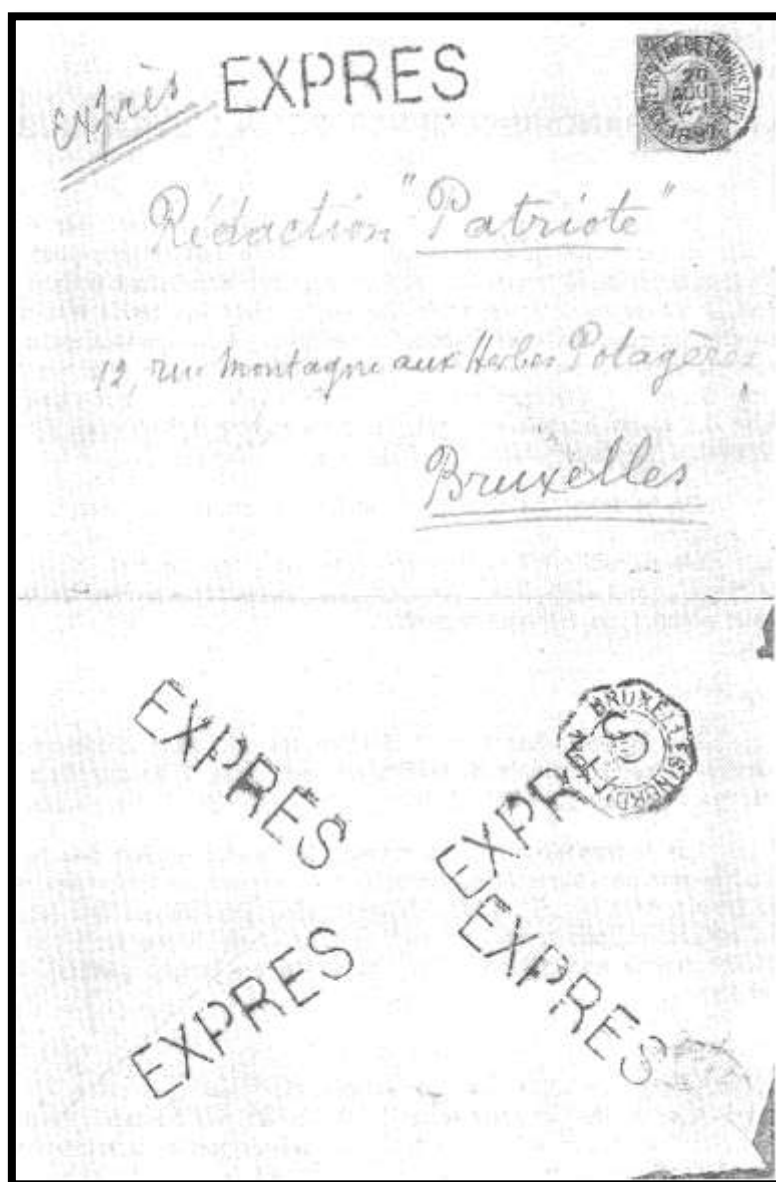 exprès
EXPRES
20
AOUT
14-
189
Rédaction "Patriote"
12, rue Montagne aux Herbes Potagères
Bruxelles
EXPRES
EXPRES
BRUXELLES (NORD)
EXPRES
EXPRES